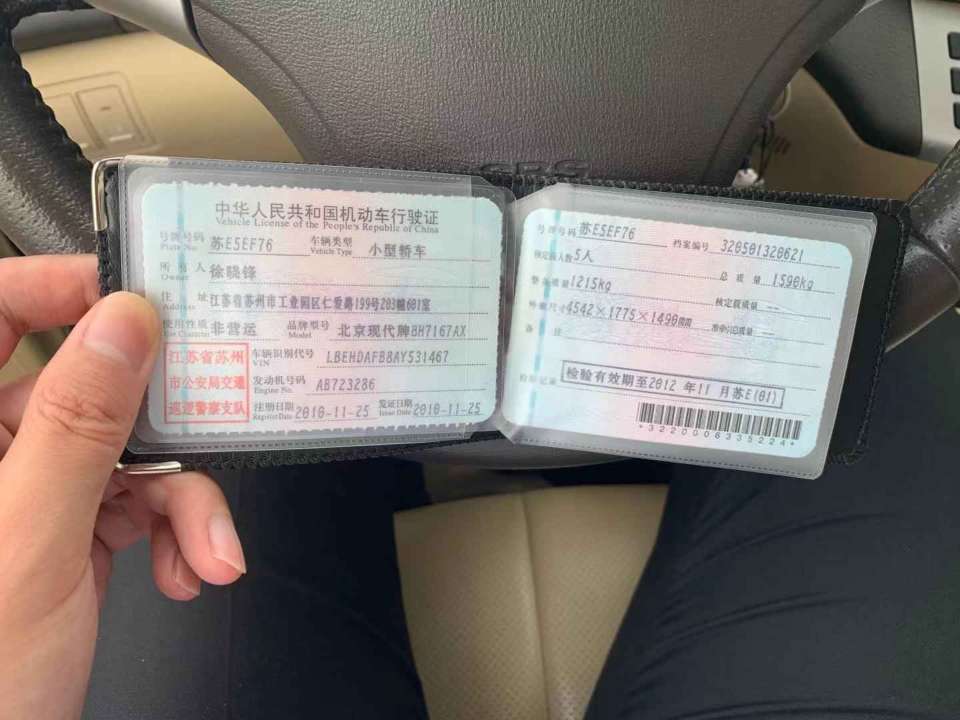 中华人民共和国机动车行驶证
Vehicle License of the People's Republic of China
号牌号码 苏E5EF76 车辆类型 小型轿车
Plate No. Vehicle Type
所有人 徐晓锋
Owner
住址 江苏省苏州市工业园区仁爱路199号203幢601室
Address
使用性质 非营运 品牌型号 北京现代牌BH7167AX
Use Character Model
江苏省苏州
市公安局交通
巡逻警察支队
车辆识别代号 LBEHDAFB8AY531467
VIN
发动机号码 AB723286
Engine No.
注册日期 2010-11-25 发证日期 2010-11-25
Register Date Issue Date
号牌号码 苏E5EF76 档案编号 320501320621
核定载人数 5人 总质量 1590kg
整备质量 1215kg 核定载质量 --
外廓尺寸 4542×1775×1490mm 准牵引总质量 --
备注
检验记录 检验有效期至2012年11月苏E(01)
*3220006335224*
SRS